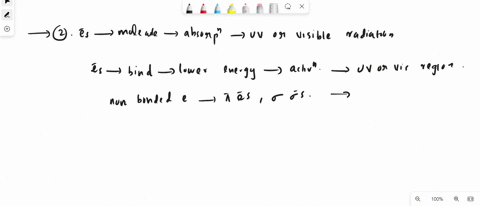 → ②. ēs → molecule → absorpⁿ → UV or visible radiation
ēs → bind → lower energy → activⁿ. → UV or vis region.
non bonded e → π ēs, σ ēs. →
100%